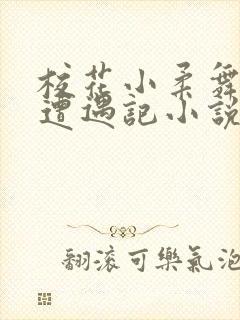 校花小柔舞
遭遇記小說
翻滾可樂氣泡